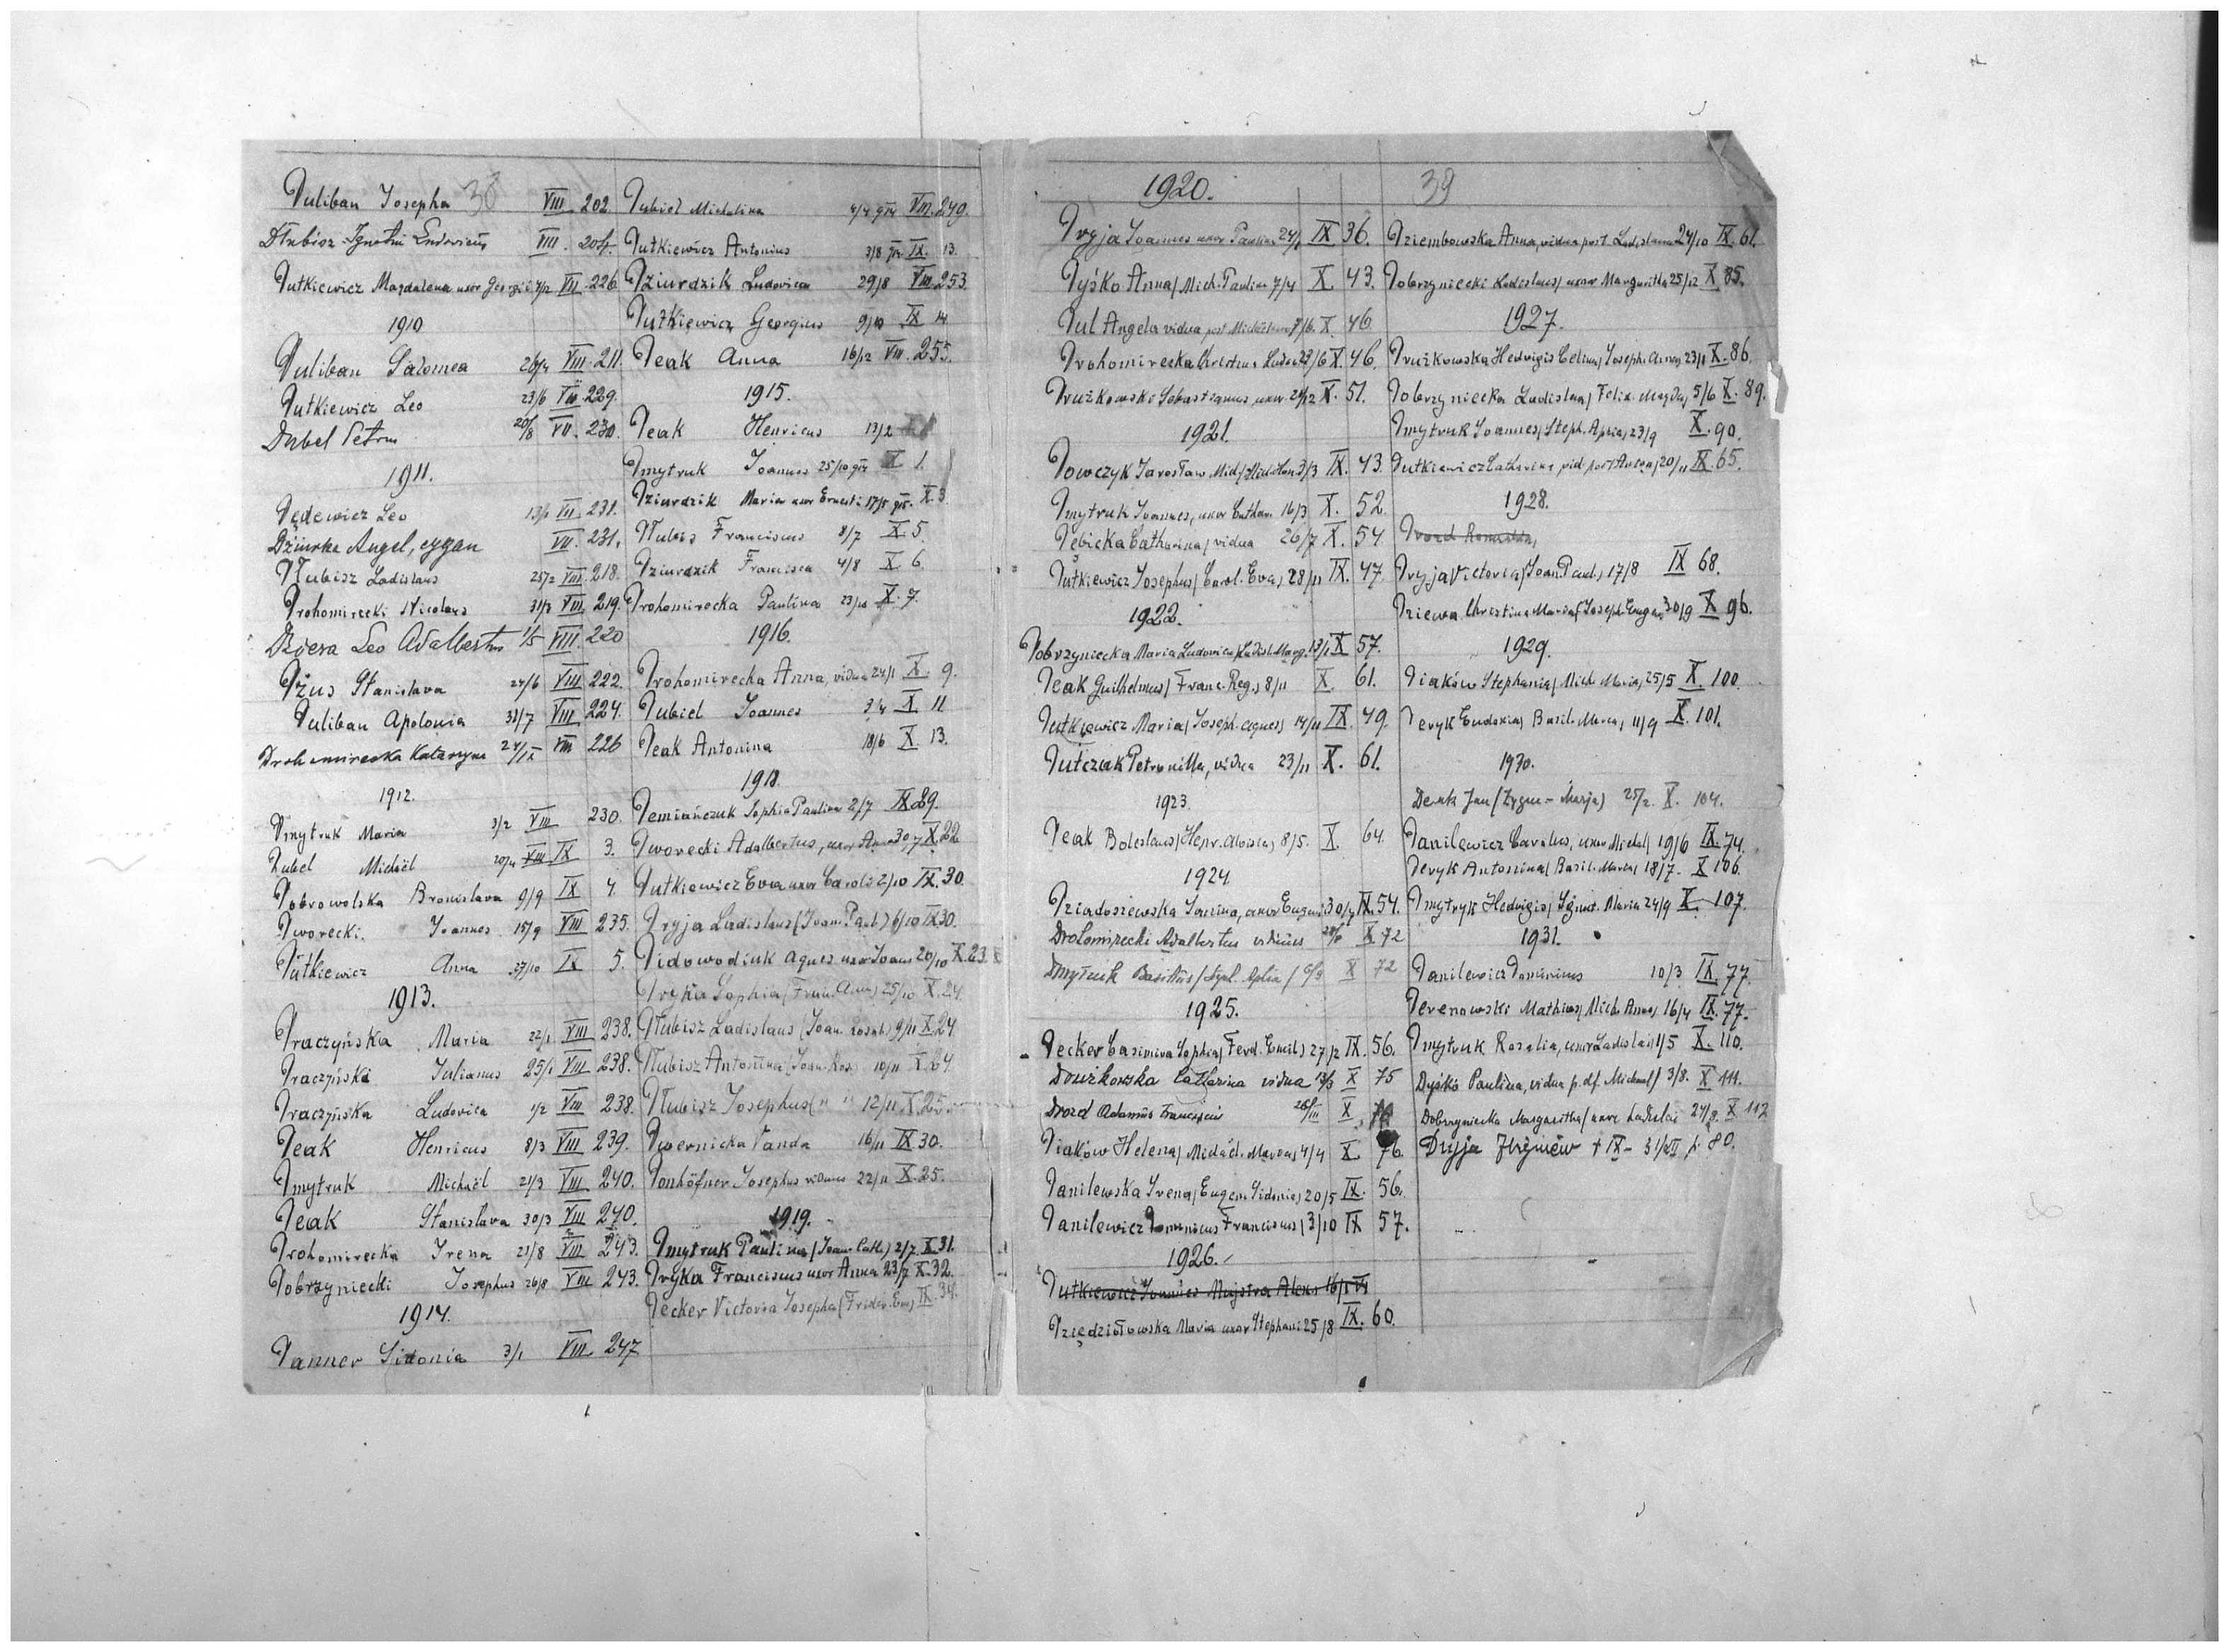 38
Duliban Josepha VIII 202.
Dłubisz Ludovicus VIII. 204.
Dutkiewicz Magdalena uxor Georgii 7/2 VII. 226.
1910
Duliban Salomea 20/4 VIII. 211.
Dutkiewicz Leo 23/6 VII. 229.
Dubel Petrus 20/8 VII. 230.
1911.
Dędewicz Leo VII. 231.
Dziurka Angel, cygan VII. 231.
Dłubisz Ladislaus 25/2 VIII. 218.
Drohomirecki Nicolaus 31/3 VIII. 219.
Leo Adalbertus 1/5 VIII. 220
Dżus Stanislava 24/6 VIII 222.
Duliban Apolonia 31/7 VIII 224.
Drohomirecka Katarzyna VIII 226
1912.
Dmytruk Maria 3/2 VIII 230.
Dubel Michaël 20/4 IX 3.
Dobrowolska Bronislava 9/9 IX 4.
Dworecki Joannes 15/9 VIII 235.
Dutkiewicz Anna 27/10 IX 5.
1913.
Draczyńska Maria 22/1 VIII 238.
Draczyński Julianus 25/1 VIII 238.
Draczyńska Ludovica 1/2 VIII 238.
Deak Henricus 8/3 VIII 239.
Dmytruk Michaël 21/3 VIII 240.
Deak Stanislava 30/3 VIII 240.
Drohomirecka Irena 21/8 VIII 243.
Dobrzyniecki Josephus 26/8 VIII 243.
1914.
Danner Sidonia 3/1 VIII 247
Dubiel Michalina 4/4 914 VIII. 249.
Dutkiewicz Antonius 3/8 IX. 13.
Dziurdzik Ludovica 29/8 VIII 253.
Dutkiewicz Georgius 9/10 IX 14
Deak Anna 16/12 VIII. 255.
1915.
Deak Henricus 13/2
Dmytruk Joannes 25/10 914 X 1.
Dziurdzik Maria uxor Ernesti 17/5 915. X. 3
Dłubisz Franciscus 8/7 X. 5.
Dziurdzik Francisca 4/8 X. 6.
Drohomirecka Paulina 23/10 X. 7.
1916.
Drohomirecka Anna, vidua 24/1 X. 9.
Dubiel Joannes 3/4 X. 11
Deak Antonina 18/6 X. 13.
1918.
Demiańczuk Sophia Paulina 2/7 IX 29.
Dworecki Adalbertus, uxor Anna 30/7 X. 22
Dutkiewicz Eva uxor Caroli 2/10 IX. 30.
Dryja Ladislaus (Joan. Paul.) 6/10 IX 30.
Didowodiuk Agnes uxor Joann 20/10 X. 23.
Dryka Sophia (Franc. Anna) 25/10 X. 24.
Dłubisz Ladislaus (Joan. Rosal.) 9/11 X. 24
Dłubisz Antonina (Joan. Ros.) 10/11 X. 24.
Dłubisz Josephus (" " 12/11 X. 25.
Dwernicka Vanda 16/11 IX 30.
Donhöfner Josephus viduus 22/11 X. 25.
1919.
Dmytruk Paulina (Joan. Cath.) 2/7 X. 31.
Dryka Franciscus uxor Anna 23/7 X. 32.
Decker Victoria Josepha (Frider. Em.) IX 34.
39
1920.
Dryja Joannes uxor Paulina 24/1 IX 36.
Dyśko Anna (Mich. Paulina 7/4 X 43.
Dul Angela vidua post Michaelem 7/6. X. 46
Drohomirecka Christina 23/6 X. 46.
Drużkowski Sebastianus, uxor 21/12 X. 51.
1921.
Dowczyk Jarosław 3/3 IX. 43.
Dmytruk Joannes, uxor Cathar. 16/3 X. 52.
Dębicka Catharina, vidua 26/7 X. 54
Dutkiewicz Josephus (Carol. Eva) 28/11 IX. 47.
1922.
Dobrzyniecka Maria Ludovica (Ladisl. Marg. 13/1 X 57.
Deak Guilhelmus (Franc. Reg.) 8/11 X. 61.
Dutkiewicz Maria (Joseph. Agnes) 14/11 IX. 49.
Dutczak Petronilla, vidua 23/11 X. 61.
1923.
Deak Boleslaus (Henr. Aloisia) 8/5. X. 64.
1924
Dziadoszewska Janina, uxor Eugenii 30/4 IX. 54.
Drohomirecki Adalbertus viduus X 72
Dmytruk Basilius / X 72
1925.
Decker Casimira Sophia (Ferd. Emil.) 27/2 IX. 56.
Dowżkowska Catharina vidua 13/3 X 75
Drozd Adamus Franciscus 28/III X
Diaków Helena (Michaël. Maria) 4/4 X. 76.
Danilewska Irena (Eugen. Sidonia) 20/5 IX. 56.
Danilewicz Dominicus Franciscus 13/10 IX 57.
1926.
Dutkiewicz Joannes Majstra Alexs 16/1 VI
Dziędziółowska Maria uxor Stephani 25/8 IX. 60.
Dziembowska Anna, vidua post Ladislaum 24/10 IX. 61.
Dobrzyniecki Ladislaus, uxor Margaritha 25/12 X 85.
1927.
Drużkowska Hedvigis Celina (Joseph. Anna) 23/1 X. 86.
Dobrzyniecka Ladislaa (Felix. Magda) 5/6 X. 89.
Dmytruk Joannes (Steph. Apria) 23/9 X. 90.
Dutkiewicz Catharina vid. post Anton. 20/11 IX. 65.
1928.
Drozd Romualda
Dryja Victoria (Joan. Paul.) 17/8 IX 68.
Dziewa Christina Maria (Joseph. Eugen.) 30/9 X 96.
1929.
Diaków Stephania (Mich. Maria) 25/5 X. 100.
Deryk Eudoxia (Basil. Maria) 11/9 X. 101.
1930.
Deak Jan (Zygm - Marja) 25/2. X. 104.
Danilewicz Carolus, uxor Michal. 19/6 IX. 74.
Deryk Antonina (Basil. Maria) 18/7. X 106.
Dmytryk Hedvigis (Sigmunt. Maria 24/9 X. 107.
1931.
Danilewicz Dominicus 10/3 IX. 77.
Derenowski Mathias (Mich. Anna) 16/4 IX. 77.
Dmytruk Rosalia, uxor Ladislai 1/5 X. 110.
Dyśko Paulina, vidua p. df. Michael/ 3/8. X 111.
Dobrzyniecka Margaritha / uxor Ladislai 27/9. X 112
Dryja Zbigniew + IX - 31/XII p. 80.